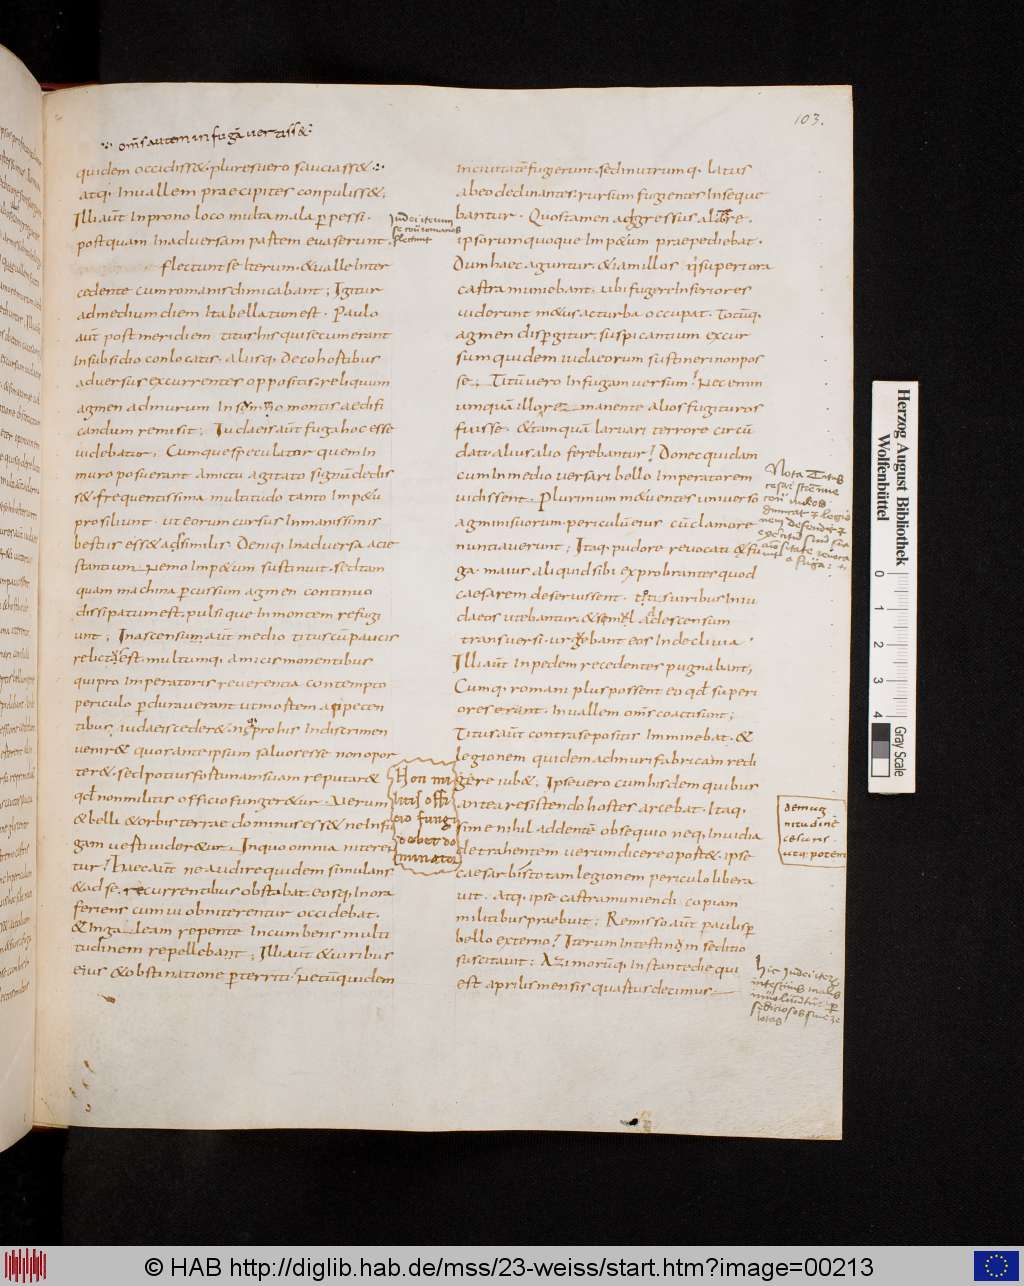 103.
om̄s autem in fugā uertiss&
quidem occidiss& plures uero sauciass&
atq; In uallem praecipites conpuliss&;
Illi aut̄ In prono loco multa mala ꝑpessi.
postquam In aduersam partem euaserunt.
flectunt se Iterum. & ualle Inter
cedente cum romanis dimicabant; Igitur
ad medium diem Ita bellatum est. Paulo
aut̄ post meridiem titus his qui secum erant
In subsidio conlocatis. aliisq; De cohortibus
aduersus excurrentes oppositis. reliquum
agmen ad murum In montis aedifi
candum remisit; Iudaeis aut̄ fuga hoc esse
uidebatur; Cumque speculator quem In
muro posuerant amictu agitato signū dedis
s& frequentissima multitudo tanto Imp&u
prosiliunt. ut eorum cursus Inmanissimis
bestiis ess& adsimilis. Deniq; In aduersa acie
stantium Nemo Imp&um sustinuit. sed tam
quam machina ꝑcussum agmen continuo
dissipatum est. pulsique In montem refugi
unt; In ascensum aut̄ medio titus cū paucis
relictus est. multumq; amicis monentibus
qui pro Imperatoris reuerentia contempto
periculo ꝑdurauerant ut mortem appeten
tibus iudaeis ceder&.
uenir& quos ante ipsum saluos esse non opor
ter&. sed potius fortunam suam reputar&
qd̄ non militis officio funger&ur. Verum
& belli & orbis terrae dominus ess&
In quo omnia niteren
tur; Haec aut̄ ne audire quidem simulans
& ad se recurrentibus obstabat. eosq; In ora
feriens cum ui obniterentur occidebat.
& In ga leam repente Incumbens multi
tudinem repellebant; Illi aut̄ & uiribus
eius & obstinatione ꝑterriti. Ne tū quidem
Iudei iterum
se cōtra romanos
flectunt
Non mi
litis offi
cio fungi
debet do
minator
In ciuitatē fugierunt. sed In utrumq; latus
ab eo declinantes. rursum fugientes Inseque
bantur. Quos tamen adgressus a latere.
ipsorum quoque Imp&um praepediebat.
Dum haec aguntur. & iam illos qui superiora
castra muniebant. ubi fugere Inferiores
uiderunt m&us ac turba occupat. Totūq;
agmen dispergitur. suspicantium excur
sum quidem iudaeorum sustineri non pos
se. Titū uero In fugam uersum; Nec enim
umquā illo manente alios fugituros
fuisse. & tamquā laruari terrore circū
dati alius alio ferebantur; Donec quidam
cum In medio uersari bello Imperatorem
uidissent. Plurimum m&uentes uniuerso
agminis uorum. periculū eius cū clamore
nuntiauerunt; Itaq; pudore reuocati & fu
ga maius aliquid sibi exprobrantes quod
caesarem deseruissent. totis uiribus In iu
daeos utebantur. & semel a descensum
transuersi. urgebant eos In decliuia.
Illi aut̄ In pedem recedentes pugnabant;
Cumq; romani plus possent eo qd̄ superi
ores erant. In uallem om̄s coacti sunt;
Titus aut̄ contra se positis Imminebat. &
legionem quidem ad muri fabricam redi
gere iub&; Ipse uero cum his cum quibus
antea resistendo hostes arcebat. Itaq;
si me nihil addentē obsequio neq; Inuidia
detrahentem uerum dicere oport&. ipse
caesar bis totam legionem periculo libera
uit. atq; ipse castra muniendi copiam
militibus praebuit; Remisso aut̄ paulisꝑ
bello externo. Iterum Intestinam seditio
suscitauit; Azimorūq; Instante die qui
est aprilis mensis quartus decimus
Nota Titus
Hic Iudei iterum
demag
nitudinē
cesaris.
utq; potens
Herzog August Bibliothek
Wolfenbüttel
0 1 2 3 4
Gray Scale
© HAB http://diglib.hab.de/mss/23-weiss/start.htm?image=00213